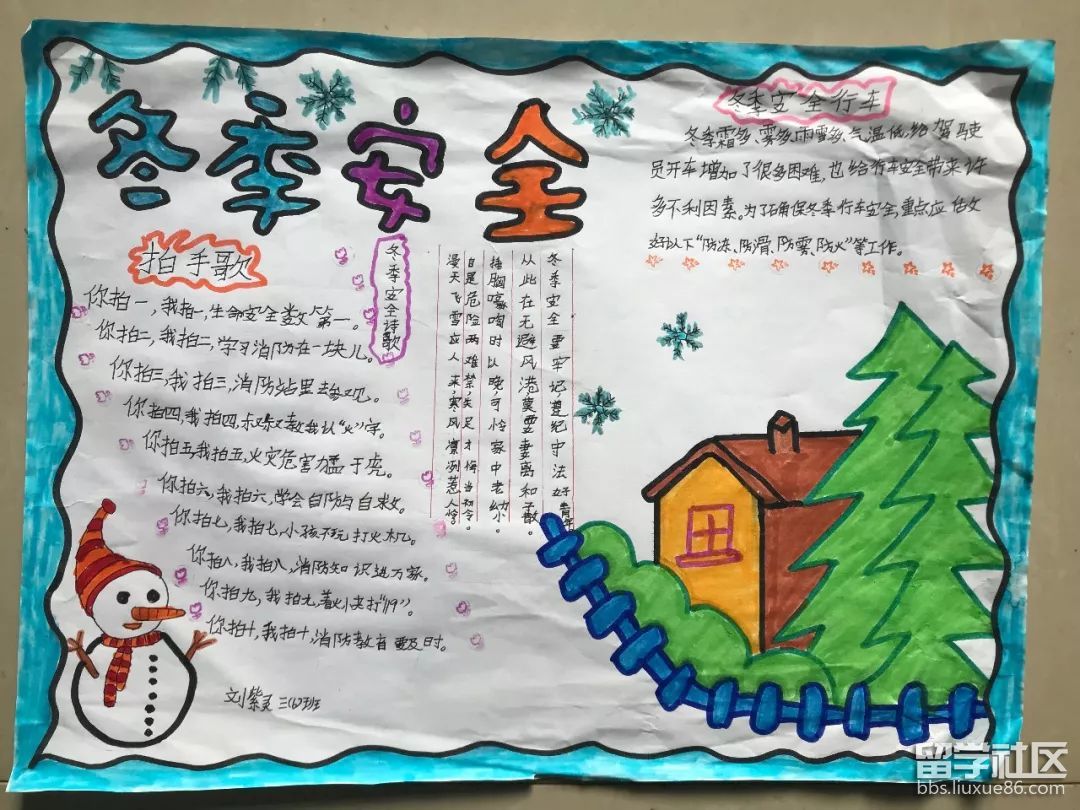 冬季安全
拍手歌
你拍一,我拍一,生命安全数第一。
你拍二,我拍二,学习消防在一块儿。
你拍三,我拍三,消防站里去参观。
你拍四,我拍四,叔叔教我认“火”字。
你拍五,我拍五,火灾危害力猛于虎。
你拍六,我拍六,学会自防与自救。
你拍七,我拍七,小孩不玩打火机。
你拍八,我拍八,消防知识进万家。
你拍九,我拍九,着火赶快打“119”。
你拍十,我拍十,消防教育要及时。
刘紫灵 三(6)班
冬季安全诗歌
冬季安全要牢记,遵纪守法好青年
从此在无避风港莫要妻离和子散。
捶胸嚎啕时以晚,可怜家中老幼小。
自是危险两难禁,失足才悔当初令。
漫天飞雪应人来,寒风凛冽惹人怜。
冬季安全行车
冬季霜多、雾多、雨雪多、气温低,给驾驶
员开车增加了很多困难,也给行车安全带来许
多不利因素。为了确保冬季行车安全,重点应该做
好以下“防冻、防滑、防雾、防火”等工作。
留学社区
bbs.liuxue86.com